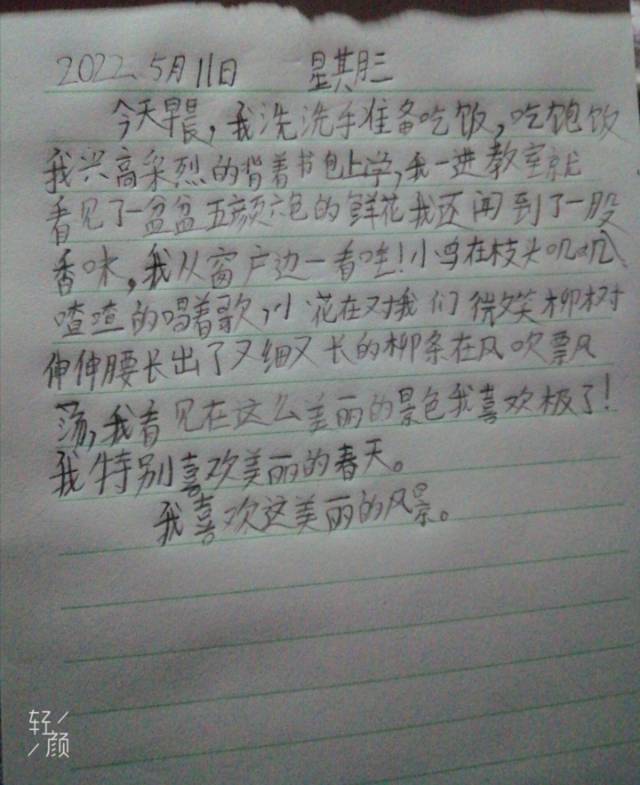 2022、5月11日 星期三
今天早晨，我洗洗手准备吃饭，吃饱饭
我兴高采烈的背着书包上学，我一进教室就
看见了一盆盆五颜六色的鲜花我还闻到了一股
香味，我从窗户边一看哇！小鸟在枝头叽叽
喳喳的唱着歌，小花在对我们微笑柳树
伸伸腰长出了又细又长的柳条在风吹飘
荡，我看见在这么美丽的景色我喜欢极了！
我特别喜欢美丽的春天。
我喜欢这美丽的风景。
轻
颜